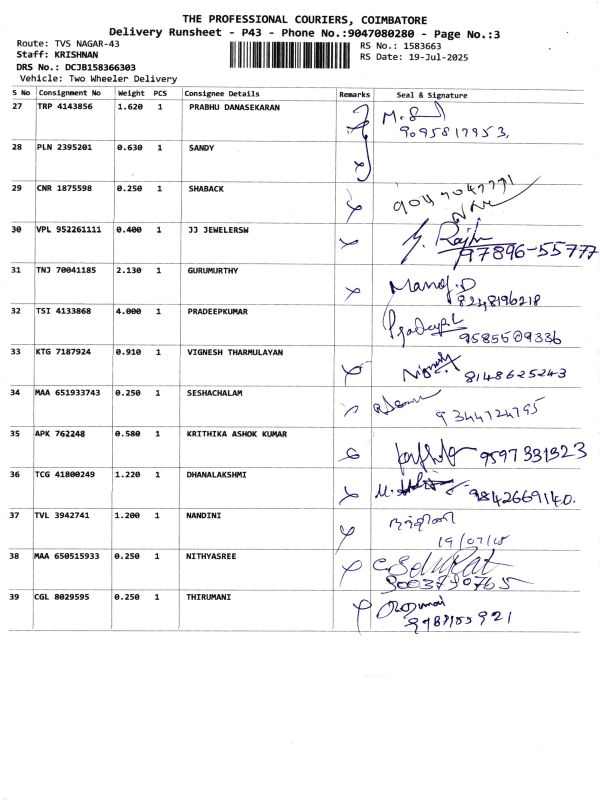 THE PROFESSIONAL COURIERS, COIMBATORE
Delivery Runsheet - P43 - Phone No.:9047080280 - Page No.:3
Route: TVS NAGAR-43 RS No.: 1583663
Staff: KRISHNAN RS Date: 19-Jul-2025
DRS No.: DCJB158366303
Vehicle: Two Wheeler Delivery
S No Consignment No Weight PCS Consignee Details Remarks Seal & Signature
27 TRP 4143856 1.620 1 PRABHU DANASEKARAN
9095817953,
28 PLN 2395201 0.630 1 SANDY
29 CNR 1875598 0.250 1 SHABACK
30 VPL 952261111 0.400 1 JJ JEWELERSW
97896-55777
31 TNJ 70041185 2.130 1 GURUMURTHY Manoj.D
8248196218
32 TSI 4133868 4.000 1 PRADEEPKUMAR
9585509336
33 KTG 7187924 0.910 1 VIGNESH THARMULAYAN
8148625243
34 MAA 651933743 0.250 1 SESHACHALAM
9344724795
35 APK 762248 0.580 1 KRITHIKA ASHOK KUMAR 9597331323
36 TCG 41800249 1.220 1 DHANALAKSHMI 9842669140.
37 TVL 3942741 1.200 1 NANDINI நந்தினி
38 MAA 650515933 0.250 1 NITHYASREE
9003790765
39 CGL 8029595 0.250 1 THIRUMANI